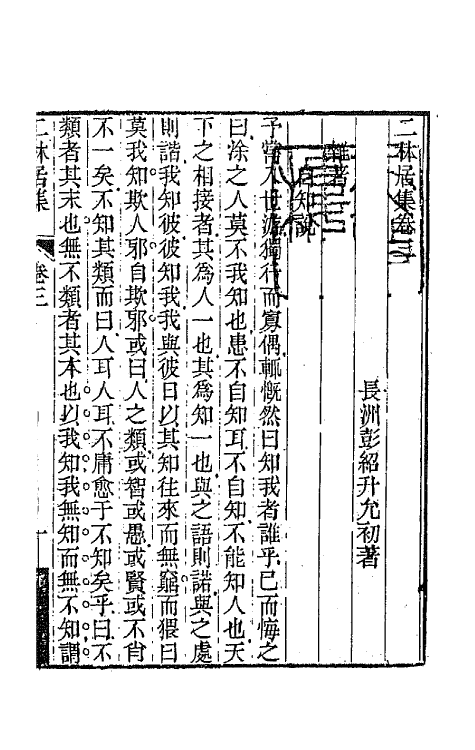 二林居集卷三
長洲彭紹升允初著
雜著
自知說
予嘗入世游獨行而寡偶輒慨然曰知我者誰乎已而悔之
曰涂之人莫不我知也患不自知耳不自知不能知人也天
下之相接者其為人一也其為知一也與之語則諾與之處
則諧我知彼彼知我我與彼日以其知往來而無窮而猥曰
莫我知欺人邪自欺邪或曰人之類或智或愚或賢或不肖
不一矣不知其類而曰人耳人耳不庸愈于不知矣乎曰不
類者其末也無不類者其本也以我知我無知而無不知謂
二林居集
卷三
一